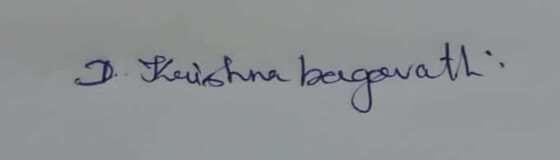 D. Krishna bagavath.